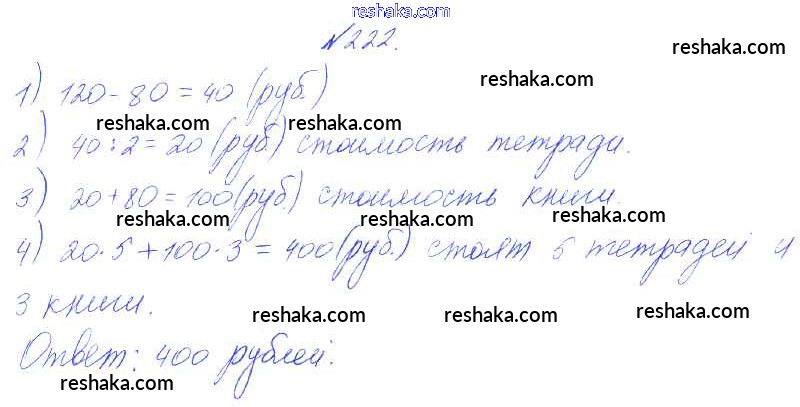 reshaka.com
№222.
reshaka.com
1) 120-80=40 (руб.)
reshaka.com
reshaka.com reshaka.com
2) 40:2=20 (руб) стоимость тетради.
reshaka.com
3) 20+80=100(руб.) стоимость книги.
reshaka.com reshaka.com reshaka.com
4) 20·5+100·3=400(руб.) стоят 5 тетрадей и
3 книги.
reshaka.com reshaka.com reshaka.com
Ответ: 400 рублей.
reshaka.com reshaka.com reshaka.com